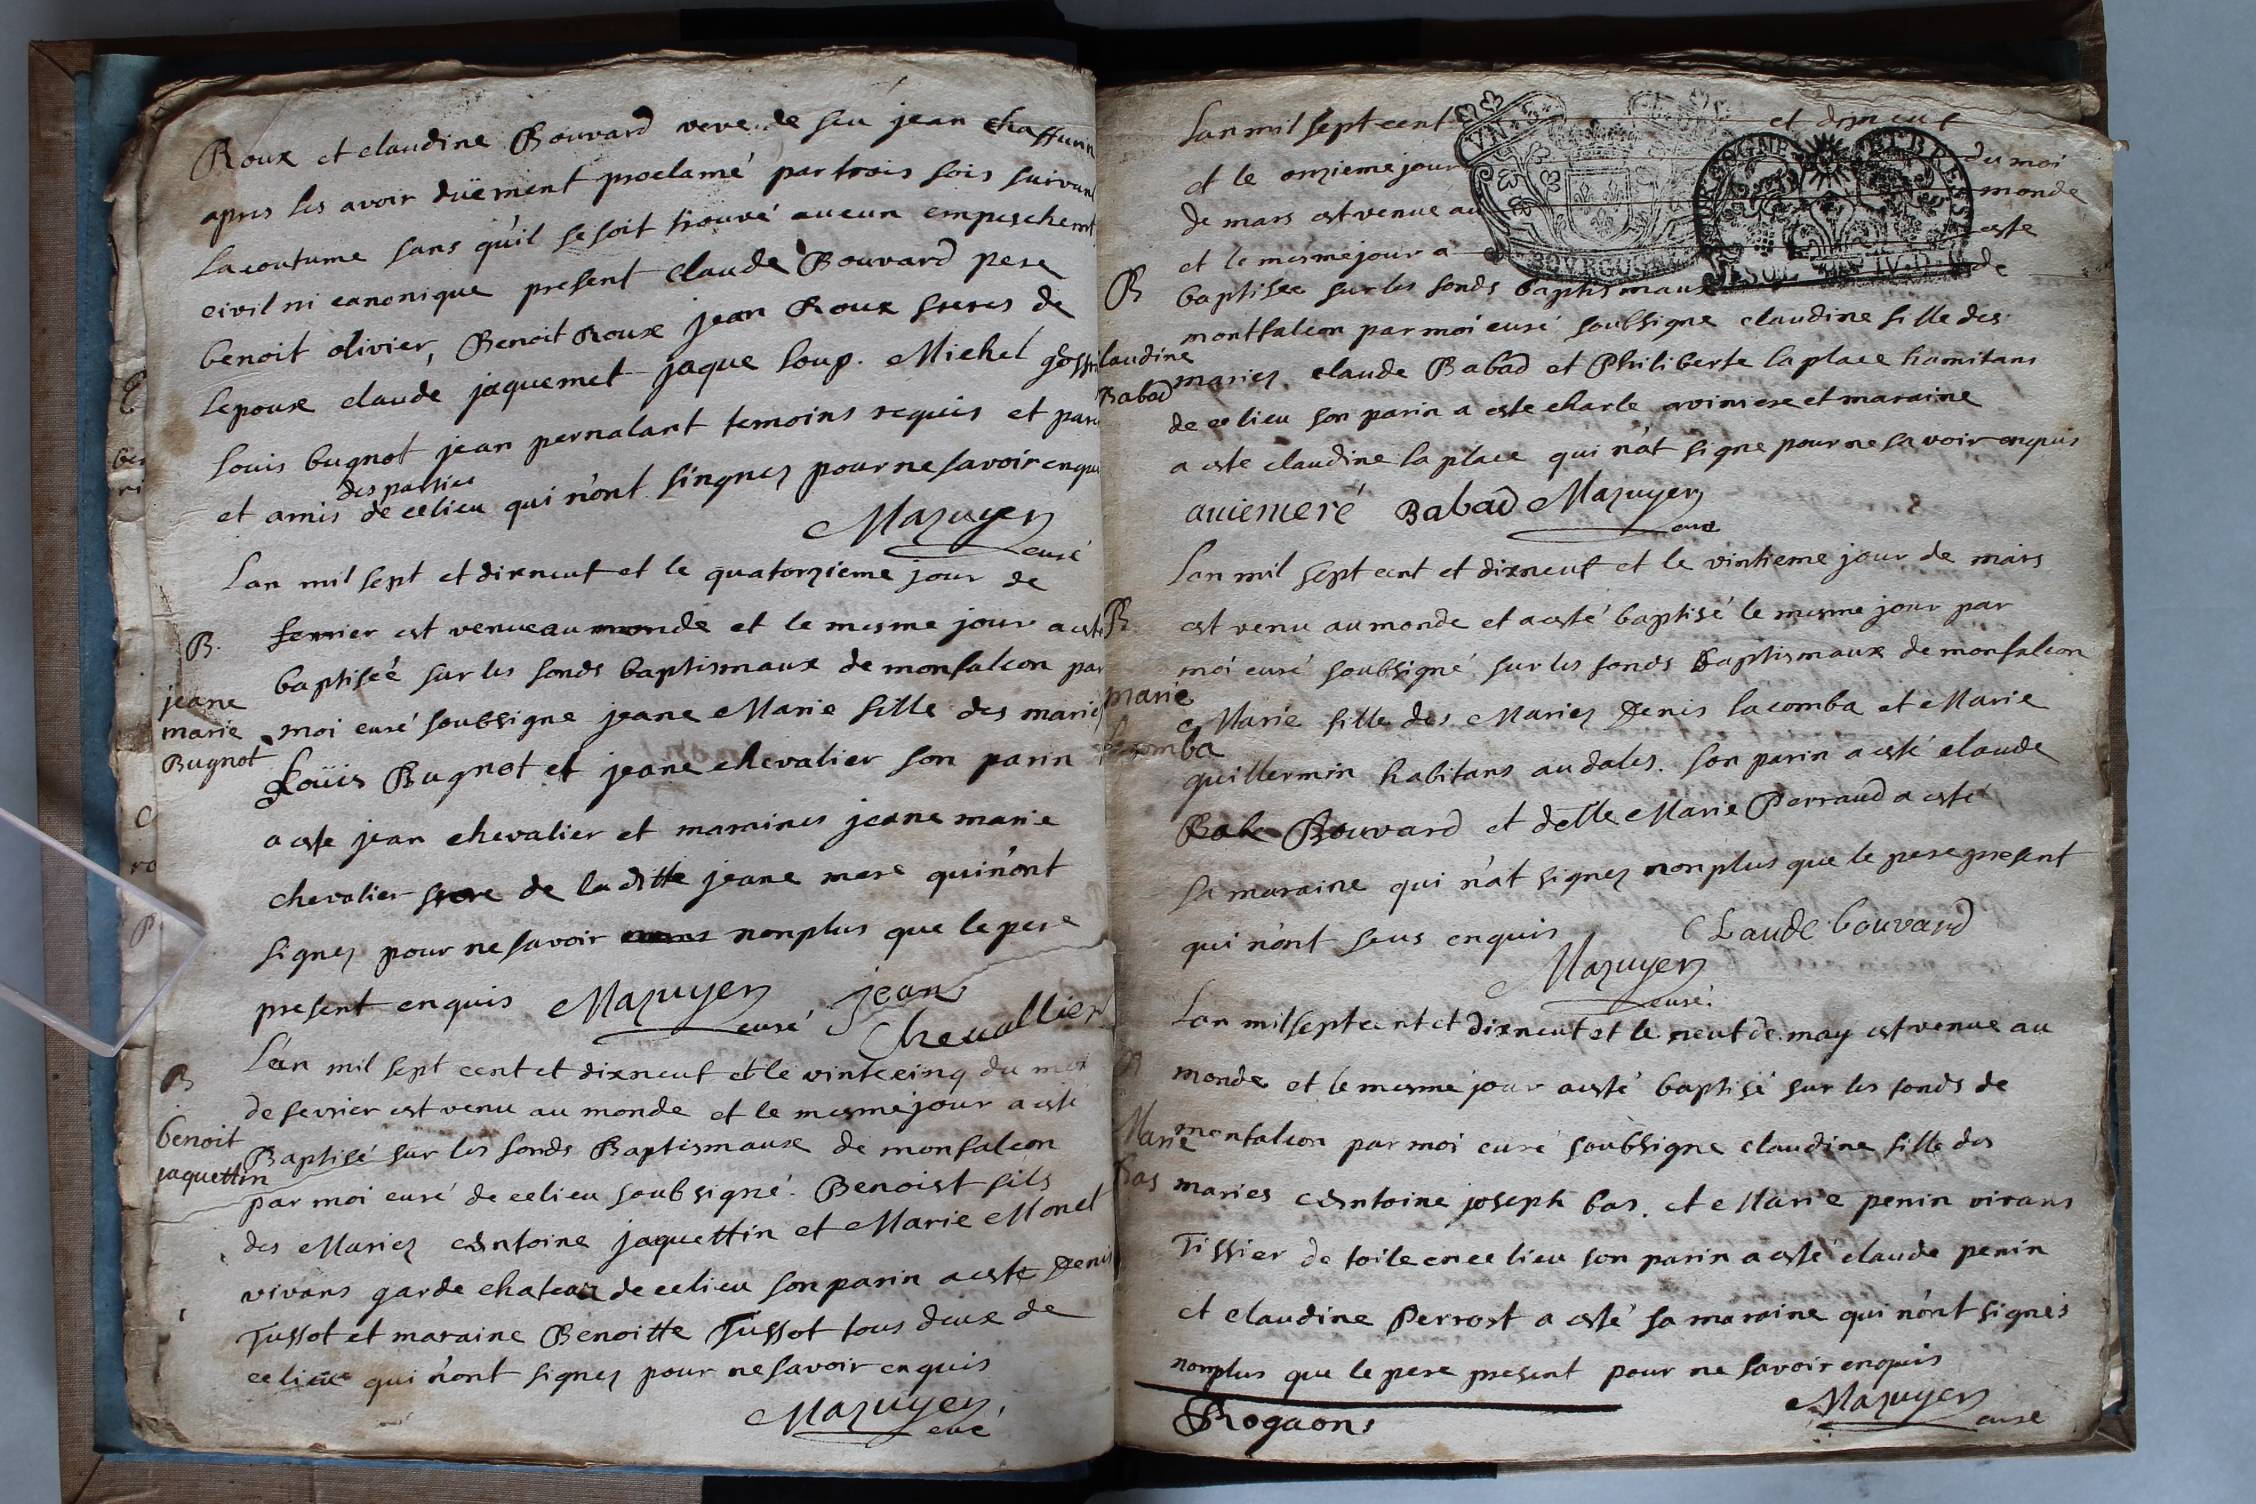 Roux et claudine Bouvard veve de feu jean chaffurin
apres les avoir düement proclamé par trois fois suivant
la coutume sans qu'il se soit trouvé aucun empeschemt
civil ni canonique present claude Bouvard pere
benoit olivier, Benoit Roux jean Roux freres de
lepoux claude jaquemet jaque loup. Michel
louis bugnot jean pernalant temoins requis et
des parties
et amis de ce lieu qui n'ont singnez pour ne savoir enquis
Mazuyer
curé
Lan mil sept et dixneuf et le quatorzieme jour de
B.
fevrier est venue au monde et le mesme jour a esté
baptiseé sur les fonds baptismaux de monfalcon par
jeane
marie
Bugnot
moi curé soubsigne jeane Marie fille des mariez
Loüis Bugnot et jeane chevalier son parin
a este jean chevalier et maraines jeane marie
chevalier de la ditte jeane mere qui n'ont
signez pour ne savoir non plus que le pere
present enquis Mazuyer curé jean
Cheuallier
B
Lan mil sept cent et dixneuf et le vintecinq du moi
de fevrier est venu au monde et le mesme jour a esté
benoit
jaquettin
Baptisé sur les fonds Baptismaux de monfalcon
par moi curé de ce lieu soubsigné. Benoist fils
des Mariez Antoine jaquettin et Marie Monet
vivans garde chateau de ce lieu son parin a este Denis
Tussot et maraine Benoitte Tussot tous deux de
ce lieu qui n'ont signez pour ne savoir enquis
Mazuyer
curé
Lan mil sept cent et dixneuf
et le onzieme jour du moi
de mars est venue au monde
et le mesme jour a este
B
baptisee sur les fonds baptismaux de
montfalcon par moi curé soubsigne claudine fille des
claudine
Babad
mariez claude Babad et Philiberte la place hamitans
de ce lieu son parin a este charle aviniere et maraine
a este claudine la place qui n'at signe pour ne savoir enquis
Babad Mazuyer
curé
Lan mil sept cent et dixneuf et le vintieme jour de mars
B.
est venu au monde et a esté baptisé le mesme jour par
moi curé soubsigné sur les fonds Baptismaux de monfalcon
marie
lacomba
Marie fille des Mariez Denis lacomba et Marie
guillermin habitans au dales. son parin a esté claude
Bouvard et delle Marie Perraud a esté
sa maraine qui n'at signez non plus que le pere present
qui n'ont seus enquis Claude bouvard
Mazuyer
curé.
Lan mil sept cent et dixneuf et le neuf de may est venue au
B
monde et le mesme jour a esté baptisé sur les fonds de
Marie
bas
monfalcon par moi curé soubsigne claudine fille des
maries Antoine joseph bas. et Marie penin vivans
Tissier de toile en ce lieu son parin a esté claude penin
et claudine Perrost a esté sa maraine qui n'ont signés
non plus que le pere present pour ne savoir enquis
Mazuyer
curé
Rogaons